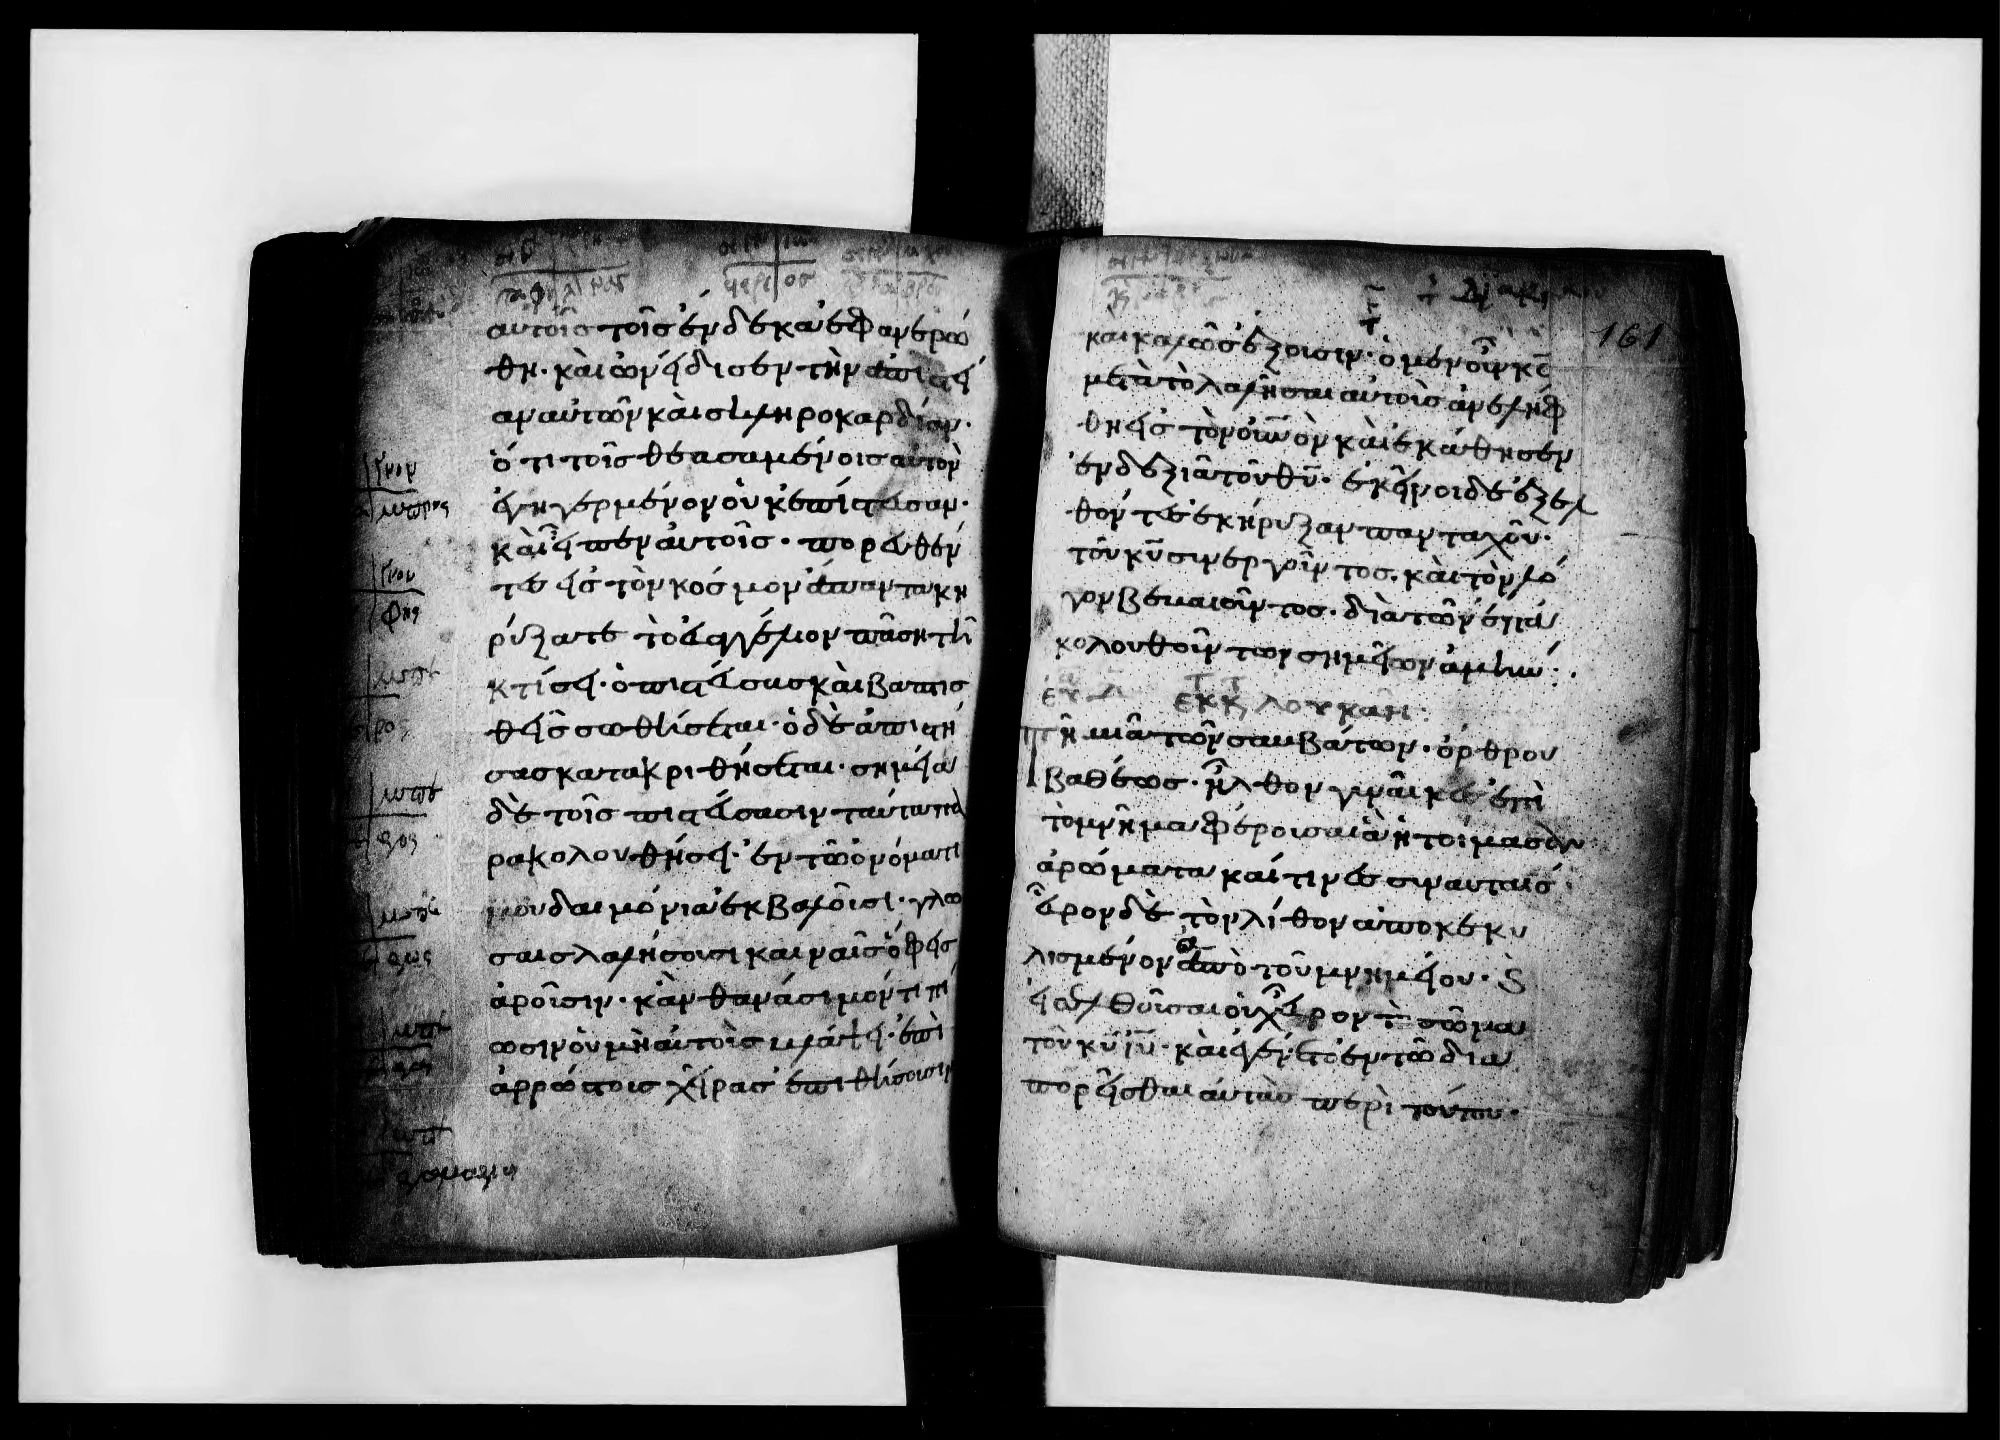 αὐτοῖς τοῖς ἕνδεκα ἐφανερώ
θη· καὶ ὠνείδισεν τὴν ἀπιστεί
αν αὐτῶν καὶ σκληροκαρδίαν·
ὅτι τοῖς θεασαμένοις αὐτὸν
ἐγηγερμένον οὐκ ἐπίστευσαν·
καὶ εἶπεν αὐτοῖς· πορευθέν
τες εἰς τὸν κόσμον ἅπαντα κη
ρύξατε τὸ εὐαγγέλιον πάση τῆ
κτίσει· ὁ πιστεύσας καὶ βαπτισ
θεὶς σωθήσεται· ὁ δὲ ἀπιστή
σας κατακριθήσεται· σημεῖα
δὲ τοῖς πιστεύσασιν ταῦτα πα
ρακολουθήσει· ἐν τῶ ὀνόματί
μου δαιμόνια ἐκβαλοῦσι· γλώ
σαις λαλήσουσι καιναῖς ὄφεις
ἀροῦσιν· κἂν θανάσιμόν τι πί
ωσιν οὐ μὴ αὐτοὺς βλάψει· ἐπὶ
ἀρρώστοις χεῖρας ἐπιθήσουσιν
161
καὶ καλῶς ἕξουσιν· ὁ μὲν οὖν κς
μετὰ τὸ λαλῆσαι αὐτοῖς ἀνελήφ
θη εἰς τὸν οὐνὸν καὶ ἐκάθησεν
ἐν δεξιᾶ τοῦ θυ· ἐκεῖνοι δὲ ἐξελ
θόντες ἐκήρυξαν πανταχοῦ·
τοῦ κυ συνεργοῦντος. καὶ τὸν λό
γον βεβαιοῦντος· διὰ τῶν ἐπα
κολουθούντων σημείων ἀμήν:·
ἐκ κ λουκᾶν:
Τῆ μιᾶ τῶν σαββάτων· ὄρθρου
βαθέως· ἦλθον γυναῖκες ἐπὶ
τὸ μνῆμα φέρουσαι ἃ ἡτοίμασαν
ἀρώματα καί τινες σὺν αὐταῖς·
εὗρον δὲ τὸν λίθον ἀποκεκυ
λισμένον ἀπὸ τοῦ μνημείου· καὶ
εἰσελθοῦσαι οὐχ εὗρον τὸ σῶμα
τοῦ κυ ιυ· καὶ ἐγένετο ἐν τῶ δια
πορεῖσθαι αὐτὰς περὶ τούτου·